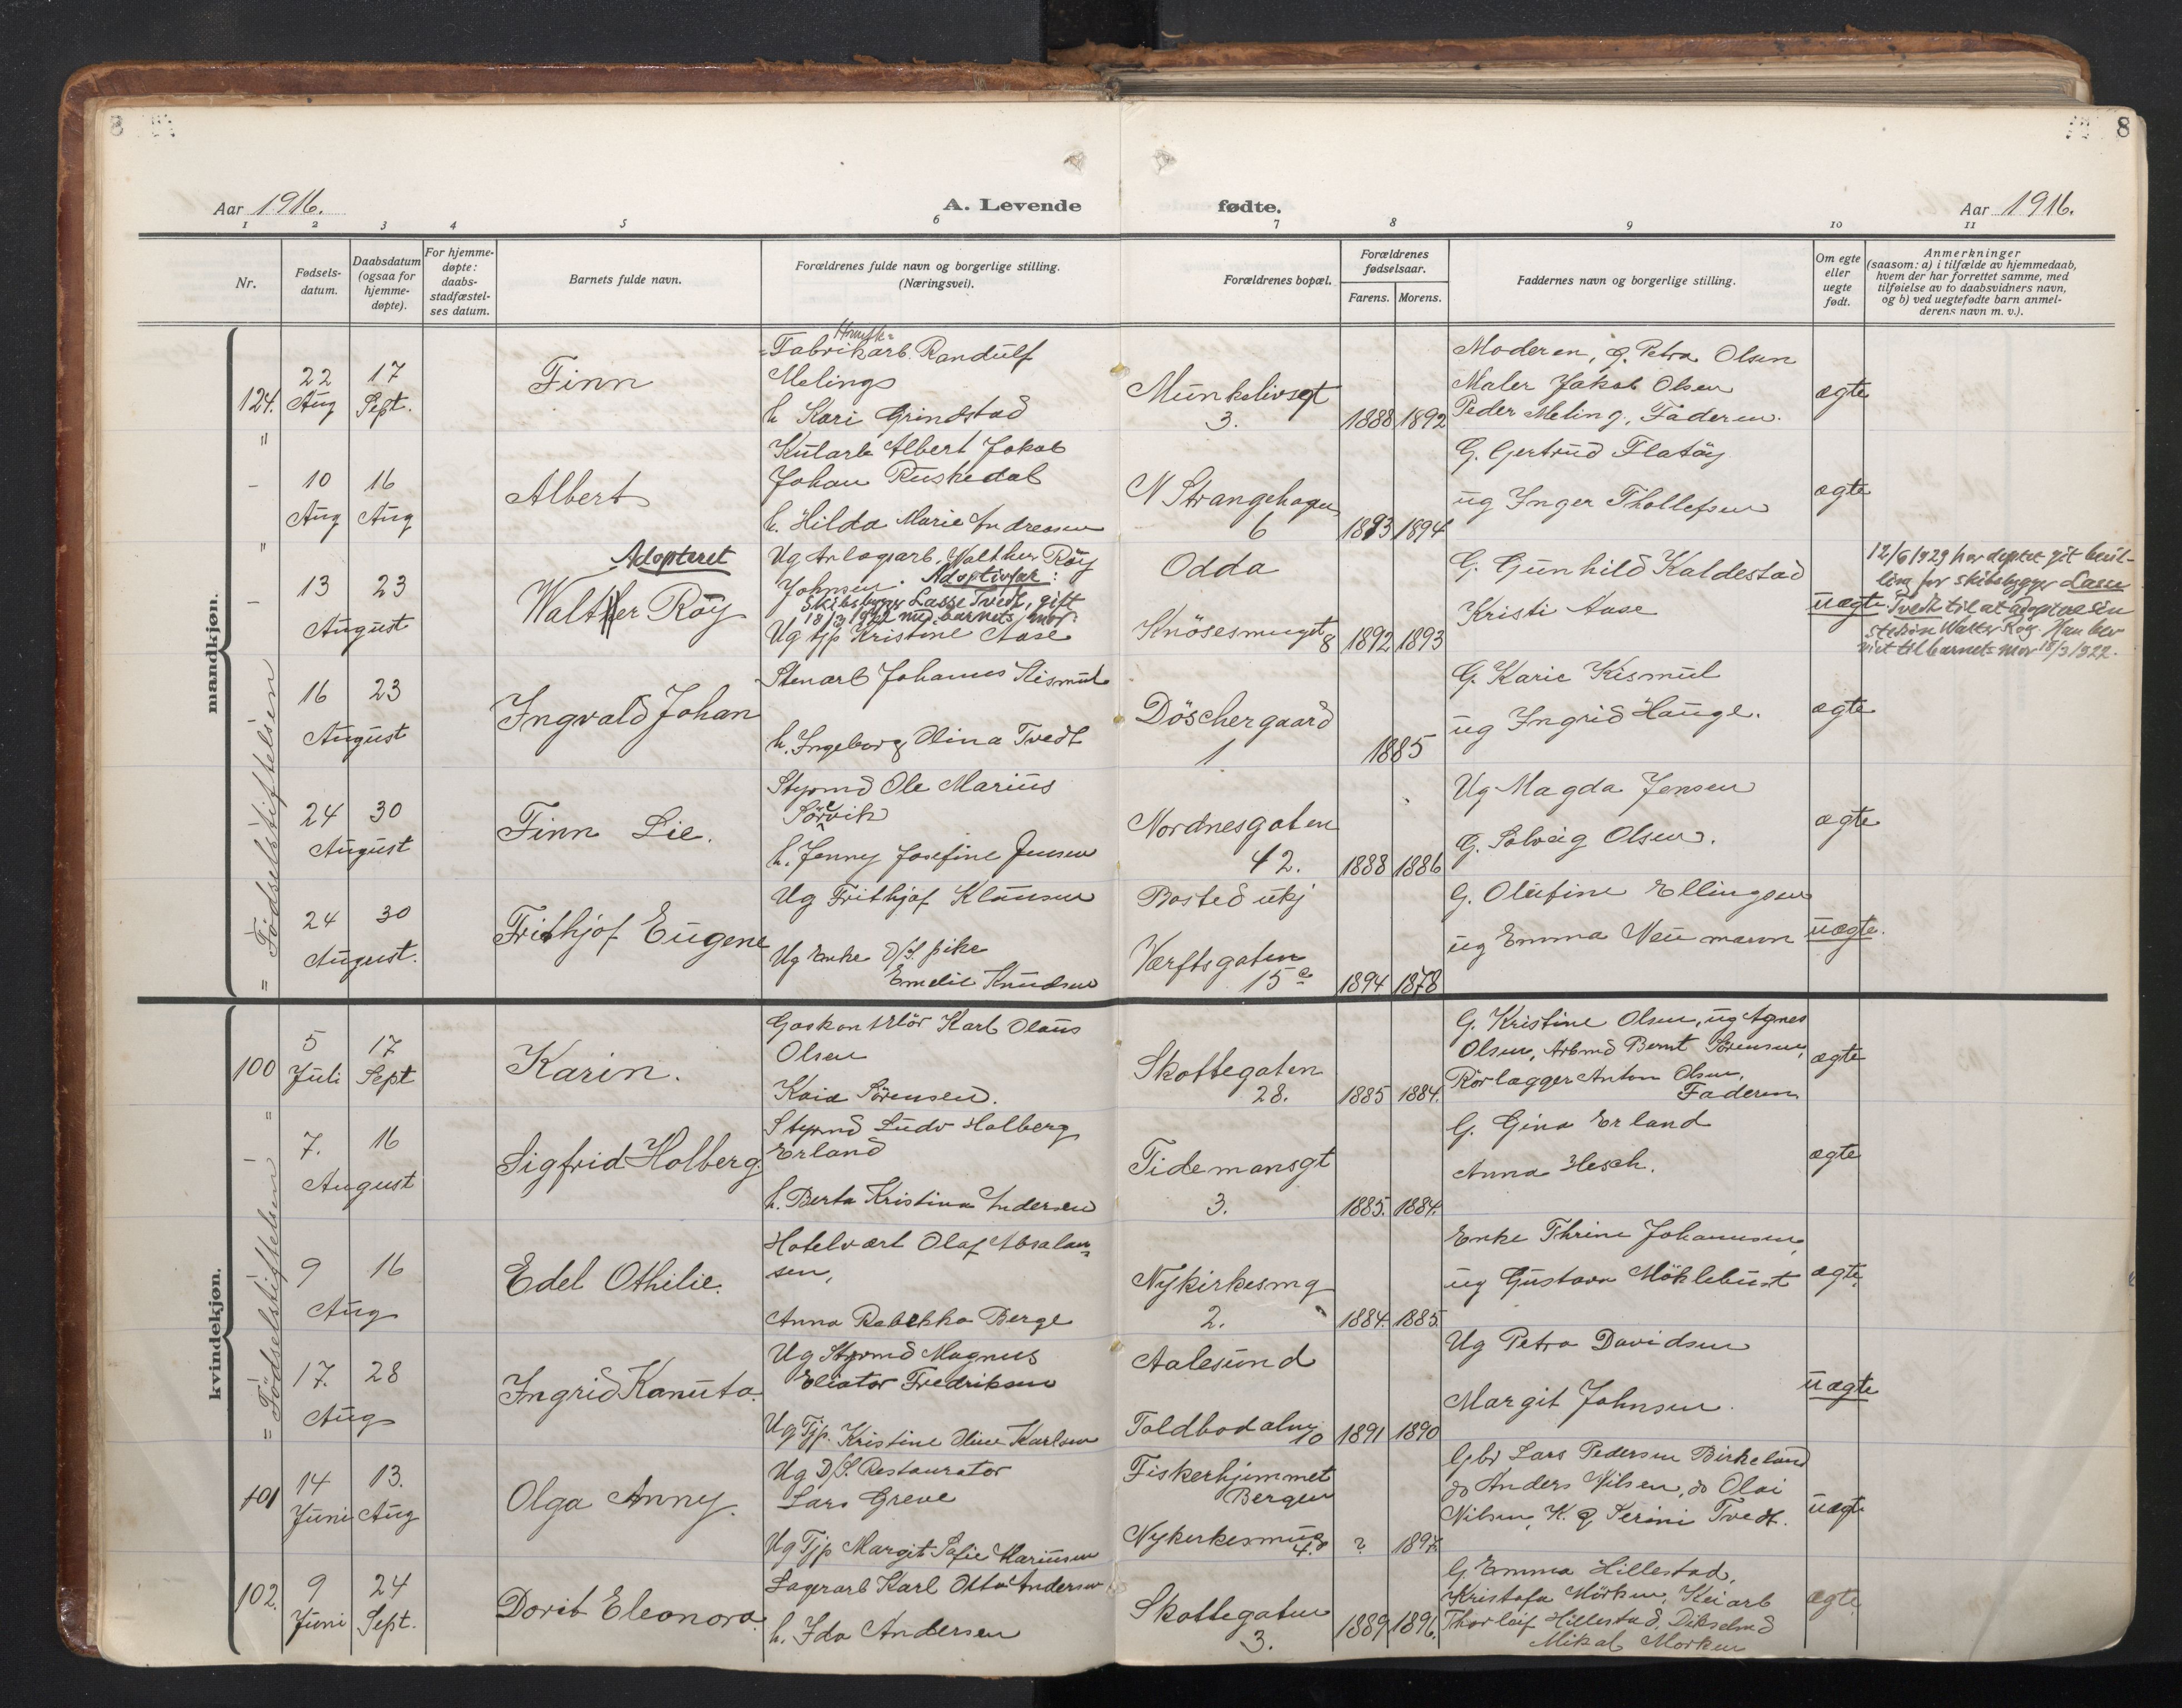 8
8
Aar 1916.
A. Levende fødte.
Aar 1916.
1 2 3 4 5 6 7 8 9 10 11
Nr.
Fødsels-
datum.
Daabsdatum
(ogsaa for
hjemme-
døpte).
For hjemme-
døpte:
daabs-
stadfæstel-
ses datum.
Barnets fulde navn.
Forældrenes fulde navn og borgerlige stilling.
(Næringsvei).
Forældrenes bopæl.
Forældrenes
fødselsaar.
Farens. Morens.
Faddernes navn og borgerlige stilling.
Om egte
eller
uegte
født.
Anmerkninger
(saasom: a) i tilfælde av hjemmedaab,
hvem der har forrettet samme, med
tilføielse av to daabsvidners navn,
og b) ved uegtefødte barn anmel-
derens navn m. v.).
mandkjøn.
= Födselsstiftelsen
124.
22
Aug
17
Sept.
Finn
Fabrikarb. Randulf
Meling
h Kari Grindstad
Munkelivsgt
3.
1888 1892
Moderen, g. Petra Olsen
Maler Jakob Olsen
Peder Meling, Faderen.
ægte
"
-
10
Aug
16
Aug
Albert
Kularb Albert Jakob
Johan Ruskedal
h. Hilda Marie Andreasen
N Strangehagen
6
1893 1894
G. Gertrud Flatöy
ug Inger Thollefsen
ægte
"
-
13 23
August
Adopteret
Walther Röy
Ug Anlægsarb. Walther Röy
Johnsen. Adoptivfar:
Skibsbygger Lasse Tvedt, gift
18/3 1922 med barnets mor:
Ug tjp Kristine Aase
Odda
Knösesmuget 8
1892 1893
G. Gunhild Kaldestad
Kristi Aase
uægte.
12/6 1929 har deptet git bevil-
ling for skibsbygger Lasse
Tvedt til at adoptere sin
stedsøn Walter Røy. Han blev
viet til barnets mor 18/3 1922.
16 23
August
Ingvald Johan
Stenarb Johannes Kismul
h. Ingeborg Olina Tvedt
Döschergaard
1
1885
G. Karie Kismul
ug Ingrid Hauge.
ægte
24 30
August
Finn Lie.
Styrmd Ole Marius
Sörvik
h. Jenny Josefine Jensen
Nordnesgaten
42.
1888 1886
Ug Magda Jensen
G. Solveig Olsen.
ægte
24 30
August.
Frithjof Eugene
Ug Frithjof Klausen
Ug Enke D/S. pike
Emelie Knudsen
Bosted ukj
Værftsgaten
15 c
1894 1878
G. Olufine Ellingsen
ug Emma Neumann
uægte.
kvindekjøn.
= Födselsstiftelsen =
100
5
Juli
17
Sept
Karin.
Gaskontrlör Karl Olaus
Olsen
Kaia Sörensen.
Skottegaten
28.
1885 1884.
G. Kristine Olsen, ug Agnes
Olsen, Arbmd Bernt Sörensen,
Rörlægger Anton Olsen,
Faderen
ægte
7. 16
August
Sigfrid Holberg.
Styrmd Ludv Holberg
Erland
h. Berta Kristina Andersen
Tidemansgt
3.
1885. 1884.
G. Gina Erland
Anna Hesch.
ægte
9 16
Aug
Edel Othilie.
Hotelvært Olaf Absalon-
sen,
Anna Rebekka Berge
Nykirkesmg
2.
1884. 1885.
Enke Thrine Johannesen,
ug Gustava Möklebust
ægte.
17. 28
Aug
Ingrid Kanuta.
Ug Styrmd Magnus
Fredriksen
Ug Tjp. Kristine Oline Karlsen
Aalesund
Toldbodalm 10
1891 1890
Ug Petra Davidsen
Margit Johnsen.
uægte
101
14
Juni
13.
Aug
Olga Anny.
Ug D/S. Restaurator
Lars Greve
Ug Tjp Margit Sofie Mariussen
Fiskerhjemmet
Bergen
Nykerkesmug
4.
? 1897.
Gbr Lars Pedersen Birkeland
do Anders Nilsen, do Olai
Nilsen, K. Q Serine Tvedt.
uægte
102.
9
Juni
24
Sept.
Dorit Eleonora.
Lagerarb Karl Otto Andersen
h. Ida Andersen
Skottegaten
3.
1889 1896.
G. Emma Hillestad,
Kristofa Mörken, Keiarb
Thorleif Hillestad,
Mikal Morken
ægte.